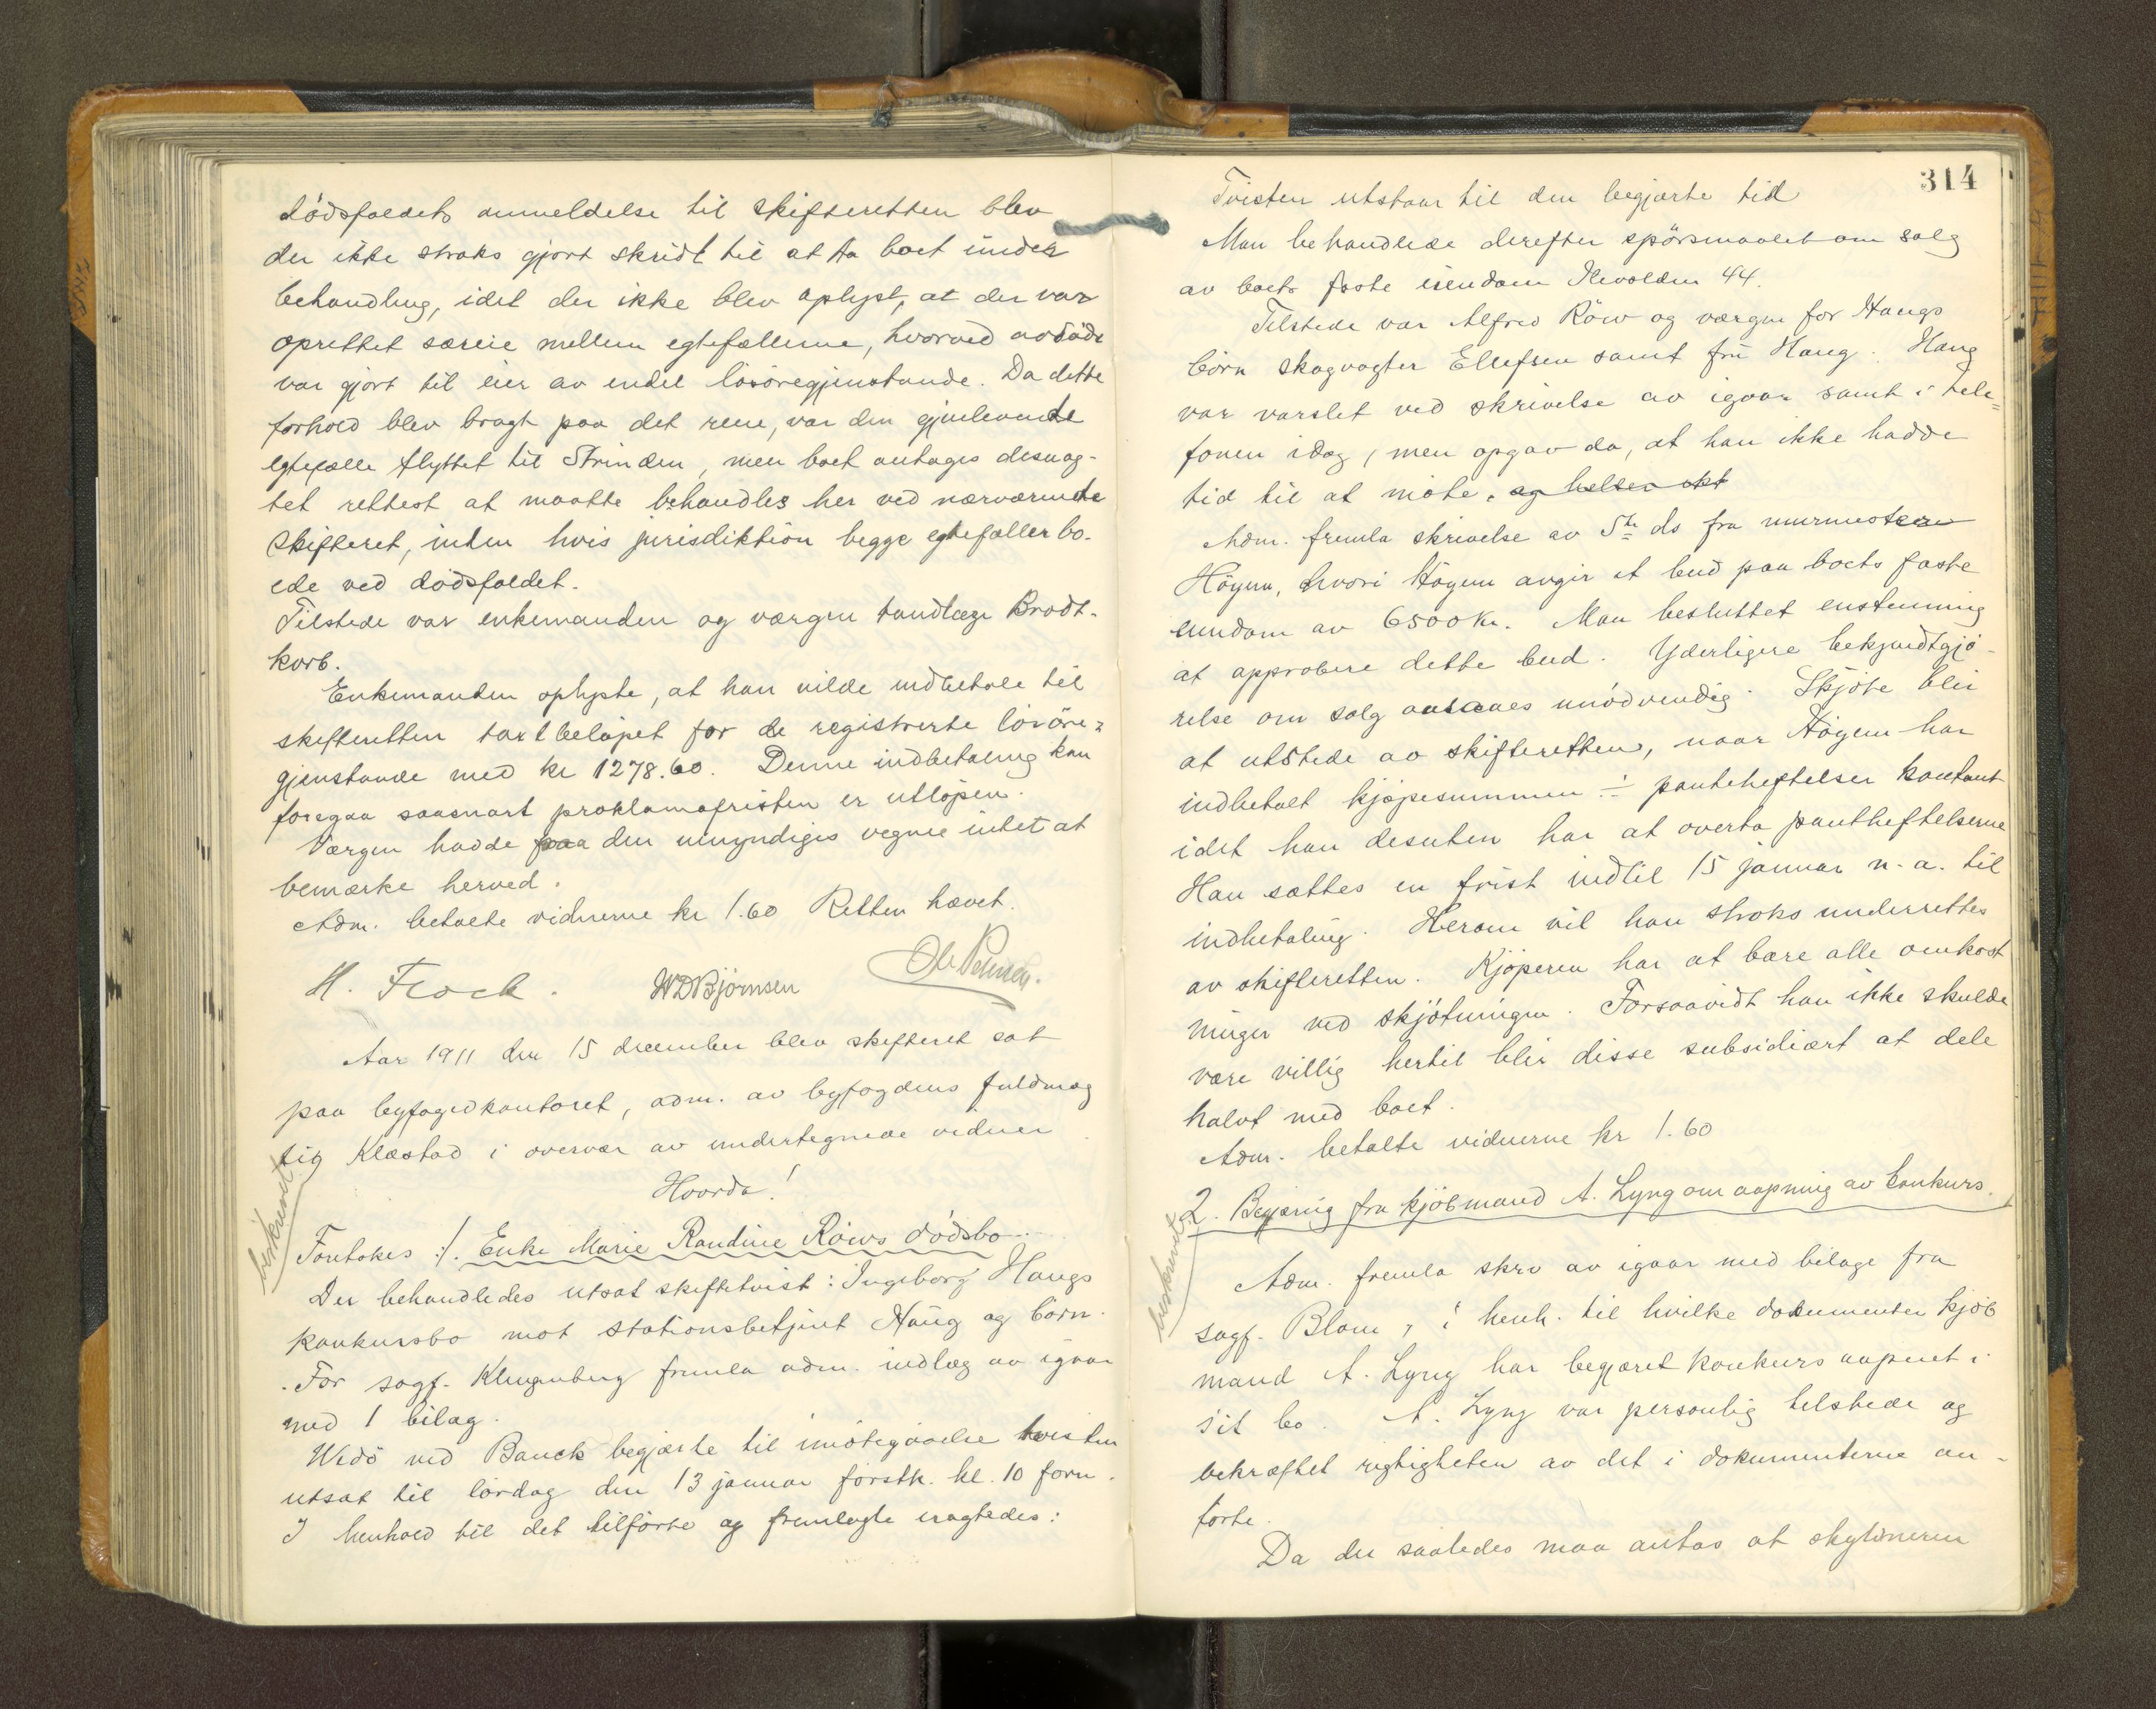 dödsfaldets anmeldelse til skifteretten blev
der ikke straks gjort skridt til at ta boet under
behandling, idet der ikke blev oplyst, at der var
oprettet særeie mellem egtefællerne, hvorved avdöde
var gjort til eier av endel lösöregjenstande. Da dette
forhold blev bragt paa det rene, var den gjenlevende
egtefælle flyttet til Strinden, men boet antages desuag-
tet rettest at maatte behandles her ved nærværende
skifteret, inden hvis jurisdiktion begge egtefæller bo-
ede ved dödsfaldet.
Tilstede var enkemanden og værgen tandlæge Brodt-
korb.
Enkemanden oplyste, at han vilde indbetale til
skifteretten taxtbelöpet for de registrerte lösöre-
gjenstande med kr 1278.60. Denne indbetaling kan
foregaa saasnart proklamafristen er utlöpen.
Værgen hadde paa den umyndiges vegne intet at
bemærke herved.
Adm. betalte vidnerne kr 1.60 Retten hævet.
H. Frock. WDBjörnsen
Aar 1911 den 15 december blev skifteret sat
paa byfogedkontoret, adm. av byfogdens fuldmæg
tig Klæstad i overvær av undertegnede vidner
Hvorda!
beskrevet
Foretokes 1. Enke Marie Randine Röws dödsbo
Der behandledes utsat skiftetvist: Ingeborg Haugs
konkursbo mot stationsbetjent Haug og börn.
For sagf. Klingenberg fremla adm. indlæg av igaar
med 1 bilag.
Wedö ved Bauck begjærte til imötegaaelse tvisten
utsat til lördag den 13 januar förstk. kl. 10 form.
I henhold til det tilförte og fremlagte eragtedes:
314
Tvisten utstaar til den begjærte tid
Man behandlede derefter spörsmaalet om salg
av boets faste eiendom Ilevolden 44.
Tilstede var Alfred Röw og værgen for Haugs
börn skogvogter Ellefsen samt fru Haug. Haug
var varslet ved skrivelse av igaar samt i tele=
fonen idag, men opgav da, at han ikke hadde
tid til at möte. og heller ikke
Adm. fremla skrivelse av 5te ds fra murmester
Höyem, hvori Höyem avgir et bud paa boets faste
eiendom av 6500 kr. Man besluttet enstemmig
at approbere dette bud. Yderligere bekjendtgjö-
relse om salg ansaaes unödvendig. Skjöte blir
at utstede av skifteretten, naar Höyem har
indbetalt kjöpesummen ÷ pantehæftelser kontant
idet han desuten har at overta panthæftelserne
Han sættes en frist indtil 15 januar n. a. til
indbetaling. Herom vil han straks underrettes
av skifteretten. Kjöperen har at bære alle omkost
ninger ved skjötningen. Forsaavidt han ikke skulde
være villig hertil blir disse subsidiært at dele
halvt med boet.
Adm. betalte vidnerne kr 1.60
beskrevet
2. Begjæring fra kjöbmand A. Lyng om aapning av konkurs.
Adm. fremla skrv av igaar med bilage fra
sagf. Blom, i henh. til hvilke dokumenter kjöb
mand A. Lyng har begjæret konkurs aapnet i
sit bo. A. Lyng var personlig tilstede og
bekræftet rigtigheten av det i dokumenterne an-
förte.
Da der saaledes maa antas at skyldneren